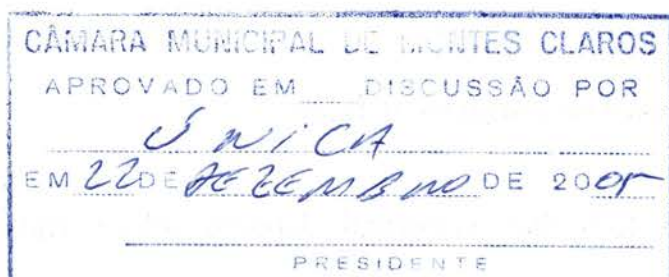 CÂMARA MUNICIPAL DE MONTES CLAROS
APROVADO EM DISCUSSÃO POR
ÚNICA
EM 22 DE DEZEMBRO DE 2005
PRESIDENTE